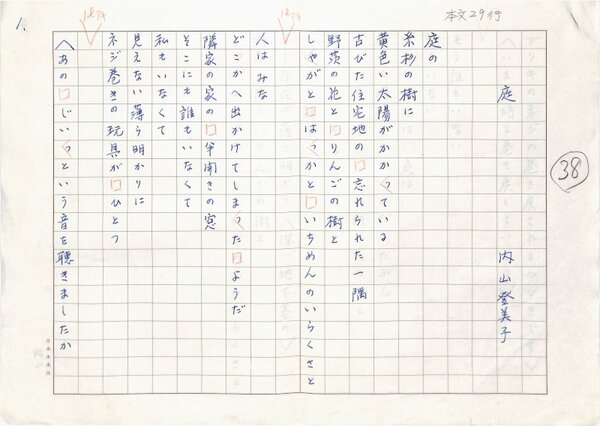 本文29行
38
庭
内山登美子
庭の
糸杉の樹に
黄色い太陽がかかっている
古びた住宅地の□忘れられた一隅
野茨の花と□りんごの樹と
しゃがと□はっかと□いちめんのいらくさと
1行アキ
人はみな
どこかへ出かけてしまった□ようだ
隣家の家の□半開きの窓
そこにも誰もいなくて
私もいなくて
見えない薄ら明かりに
ネジ巻きの玩具が□ひとつ
1行アキ
へあの□じいっという音を聴きましたか
1.
日本未来派